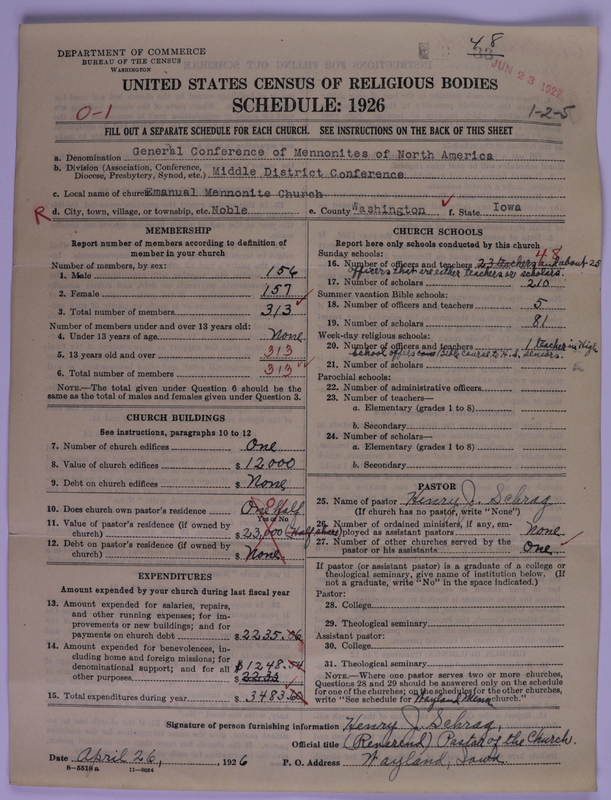 48
33
JUN 23 1927
DEPARTMENT OF COMMERCE
BUREAU OF THE CENSUS
WASHINGTON
UNITED STATES CENSUS OF RELIGIOUS BODIES
SCHEDULE: 1926
0-1
1-2-5
FILL OUT A SEPARATE SCHEDULE FOR EACH CHURCH. SEE INSTRUCTIONS ON THE BACK OF THIS SHEET
a. Denomination General Conference of Mennonites of North America
b. Division (Association, Conference, Diocese, Presbytery, Synod, etc.) Middle District Conference
c. Local name of church Emanual Mennonite Church
R d. City, town, village, or township, etc. Noble e. County Washington f. State Iowa
MEMBERSHIP
Report number of members according to definition of
member in your church
Number of members, by sex:
1. Male 156
2. Female 157
3. Total number of members 313
Number of members under and over 13 years old:
4. Under 13 years of age None
5. 13 years old and over 313
6. Total number of members 313
NOTE.—The total given under Question 6 should be the
same as the total of males and females given under Question 3.
CHURCH BUILDINGS
See instructions, paragraphs 10 to 12
7. Number of church edifices One
8. Value of church edifices $ 12000
9. Debt on church edifices $ None
10. Does church own pastor's residence One half
Yes or No
11. Value of pastor's residence (if owned by
church) $ (Half share)
12. Debt on pastor's residence (if owned by
church) $ None
EXPENDITURES
Amount expended by your church during last fiscal year
13. Amount expended for salaries, repairs,
and other running expenses; for im-
provements or new buildings; and for
payments on church debt $ 2235.06
14. Amount expended for benevolences, in-
cluding home and foreign missions; for
denominational support; and for all $1248.54
other purposes $ 2235
15. Total expenditures during year $ 3483.60
CHURCH SCHOOLS
Report here only schools conducted by this church
Sunday schools: 48
16. Number of officers and teachers 23 teachers and about 25
officers that are either teachers or scholars.
17. Number of scholars 210
Summer vacation Bible schools:
18. Number of officers and teachers 5
19. Number of scholars 81
Week-day religious schools:
20. Number of officers and teachers 1 teacher in High
School offers Bible Course to H.S. Seniors.
21. Number of scholars
Parochial schools:
22. Number of administrative officers
23. Number of teachers—
a. Elementary (grades 1 to 8)
b. Secondary
24. Number of scholars—
a. Elementary (grades 1 to 8)
b. Secondary
PASTOR
25. Name of pastor Henry J. Schrag
(If church has no pastor, write "None")
26. Number of ordained ministers, if any, em-
ployed as assistant pastors None
27. Number of other churches served by the
pastor or his assistants One
If pastor (or assistant pastor) is a graduate of a college or
theological seminary, give name of institution below. (If
not a graduate, write "No" in the space indicated.)
Pastor:
28. College
29. Theological seminary
Assistant pastor:
30. College
31. Theological seminary
NOTE.—Where one pastor serves two or more churches,
Questions 28 and 29 should be answered only on the schedule
for one of the churches; on the schedules for the other churches,
write "See schedule for Wayland Menn church."
Signature of person furnishing information Henry J. Schrag
Official title (Reverend) Pastor of the Church.
Date April 26, , 1926 P. O. Address Wayland, Iowa
8-5518a 11-9064